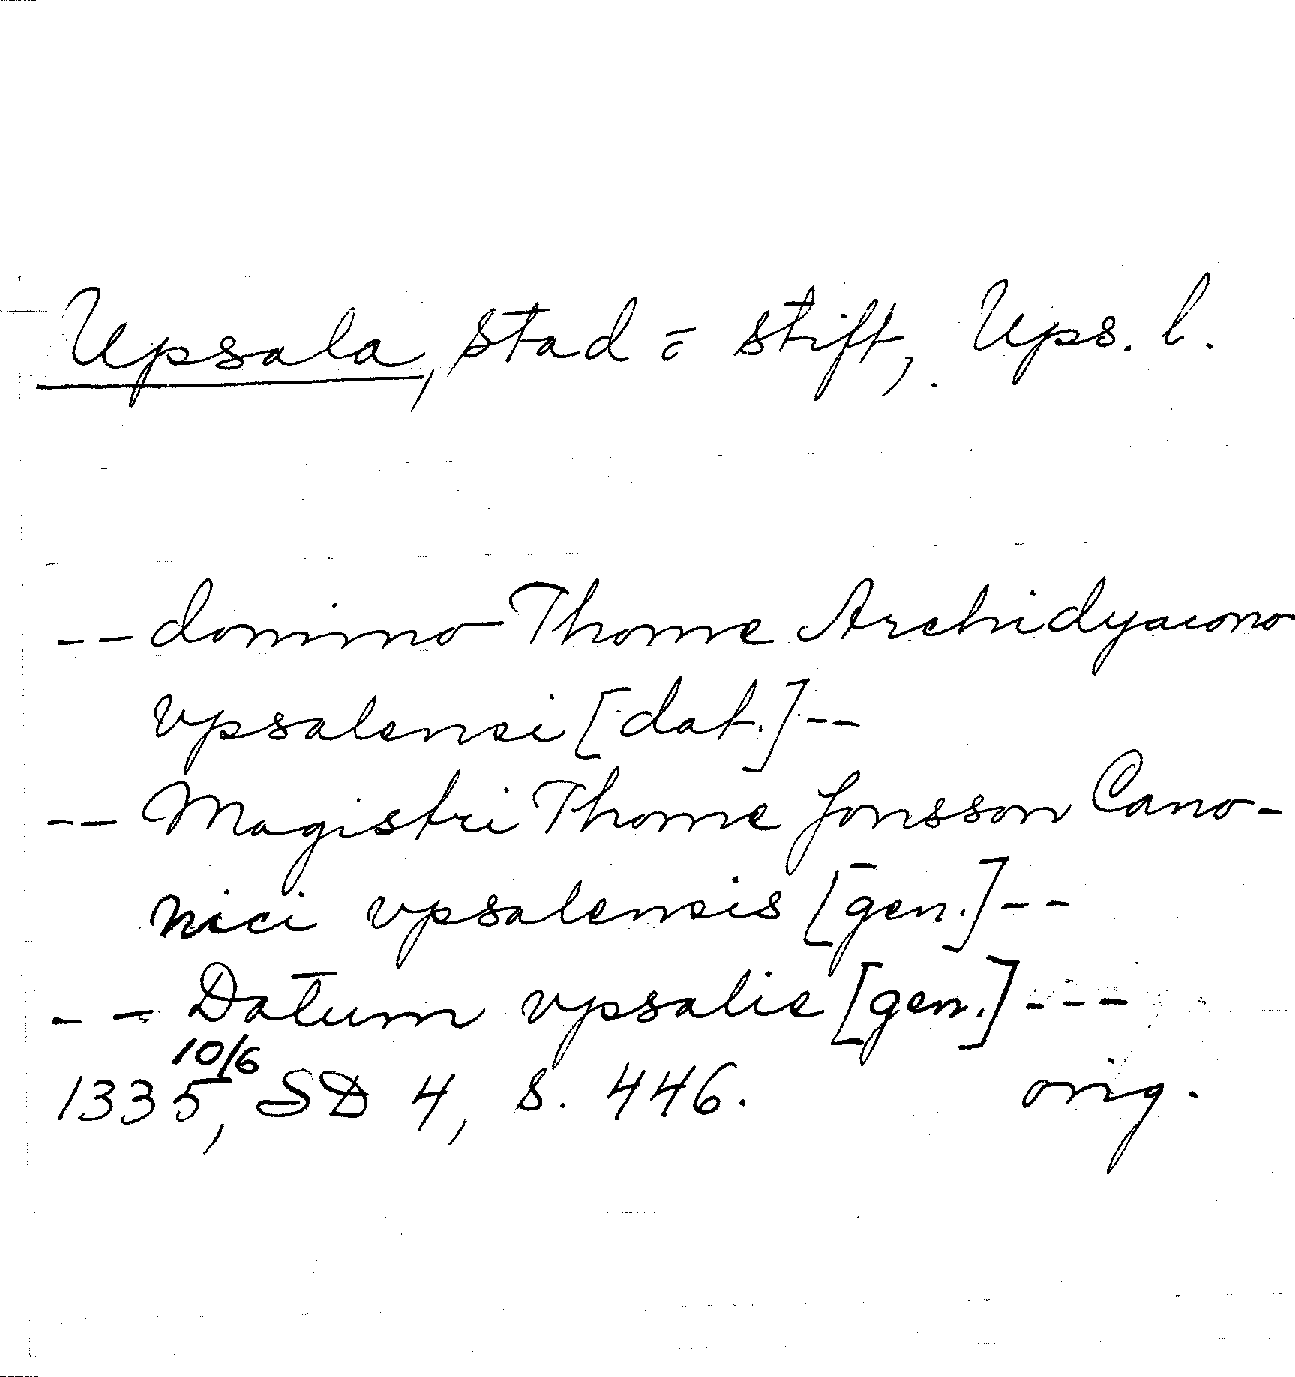 Upsala, stad o stift, Ups. l.
-- domino Thome Archidyacono
vpsalensi [dat.] --
-- Magistri Thome Jonsson Cano-
nici vpsalensis [gen.] --
-- Datum vpsalie [gen.] ---
10/6
1335, SD 4, s. 446. orig.